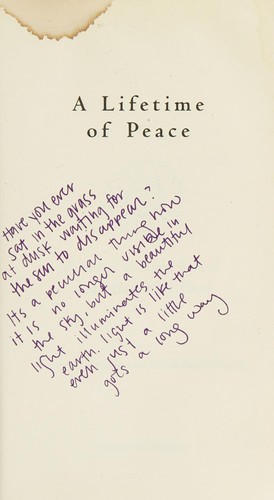 A Lifetime
of Peace
Have you ever
sat in the grass
at dusk waiting for
the sun to disappear?
Its a peculiar thing how
it is no longer visible in
the sky, but a beautiful
light illuminates the
earth. light is like that
even just a little
gots a long way